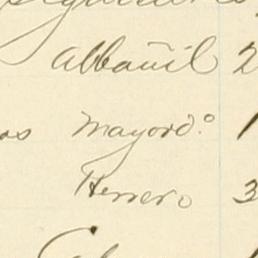 Albañil 2
os Mayord.º 1
Herrero 3